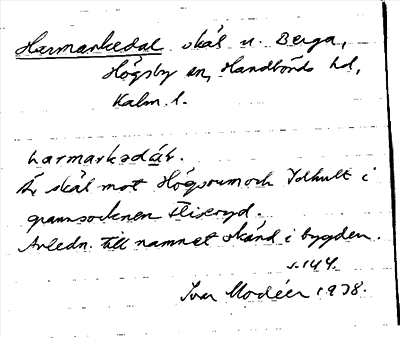 Harmarkedal skäl u. Berga,
Högsby sn, Handbörds hd,
Kalm. l.
harmarkedal.
Är skäl mot Högsrum och Idhult i
grannsocknen Fliseryd.
Anledn. till namnet okänd i bygden.
s. 144.
Ivar Modéer 1938.